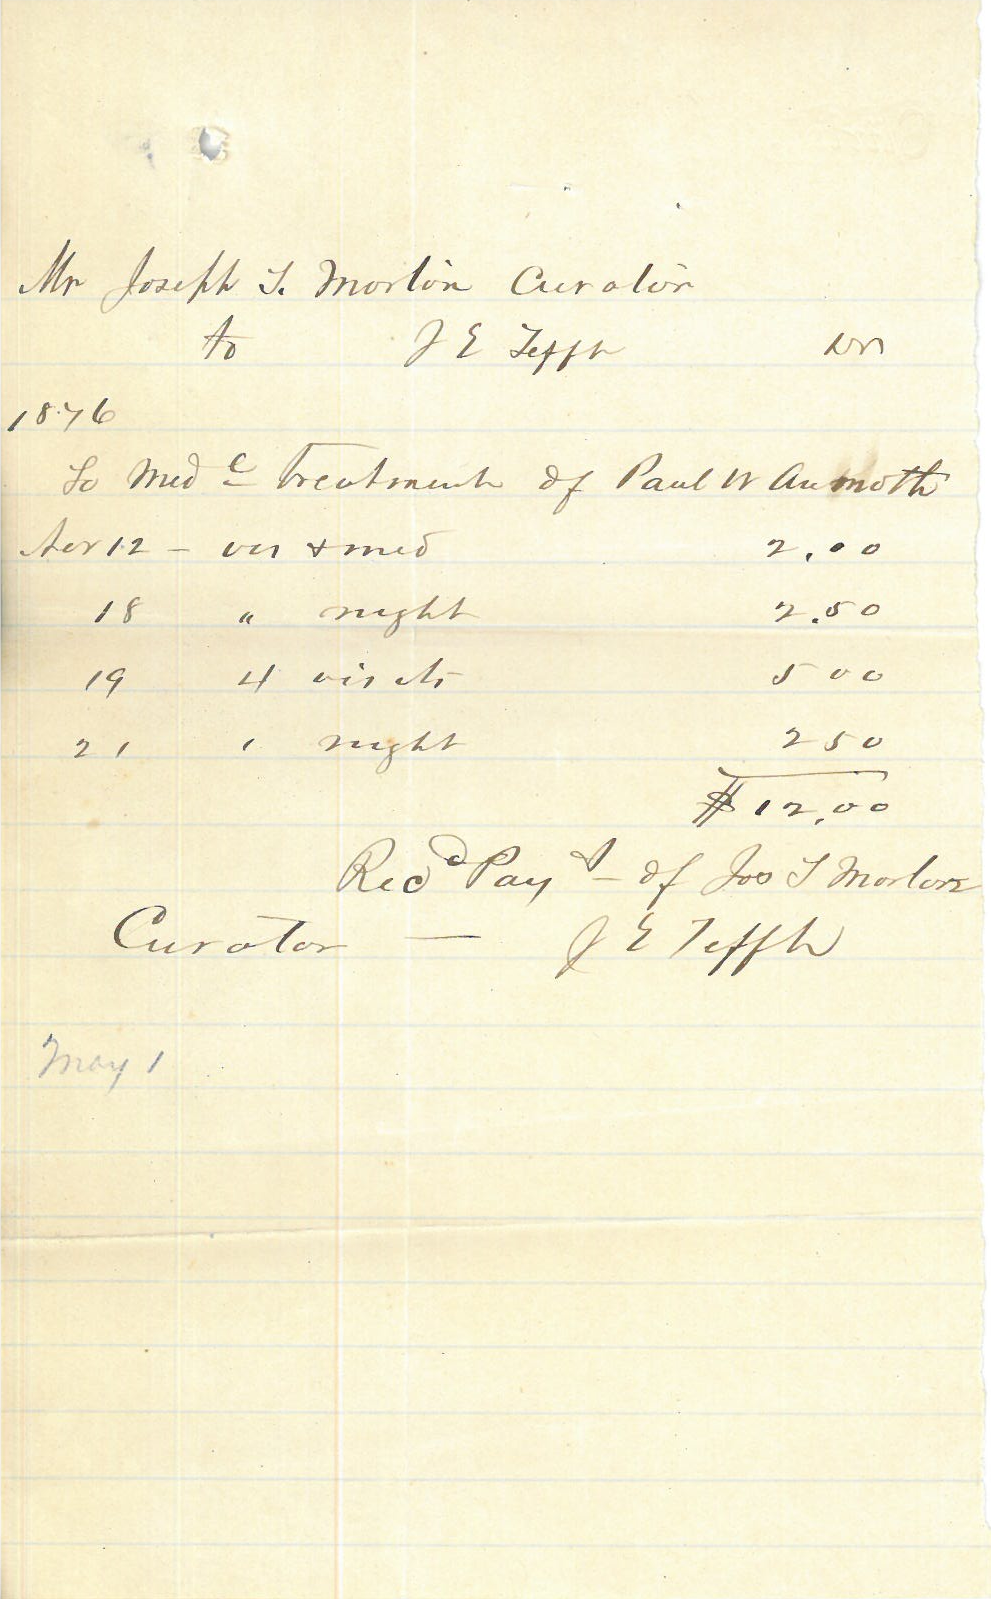 Mr Joseph T. Morton Curator
to J E Tefft Dr
1876
To Medc Treatment of Paul W Aumoth
Apr 12 - vis & med 2.00
18 " night 2.50
19 4 visits 5 00
21 1 night 2 50
$12.00
Recd Payt - of Jos T Morton
Curator — J E Tefft
May 1